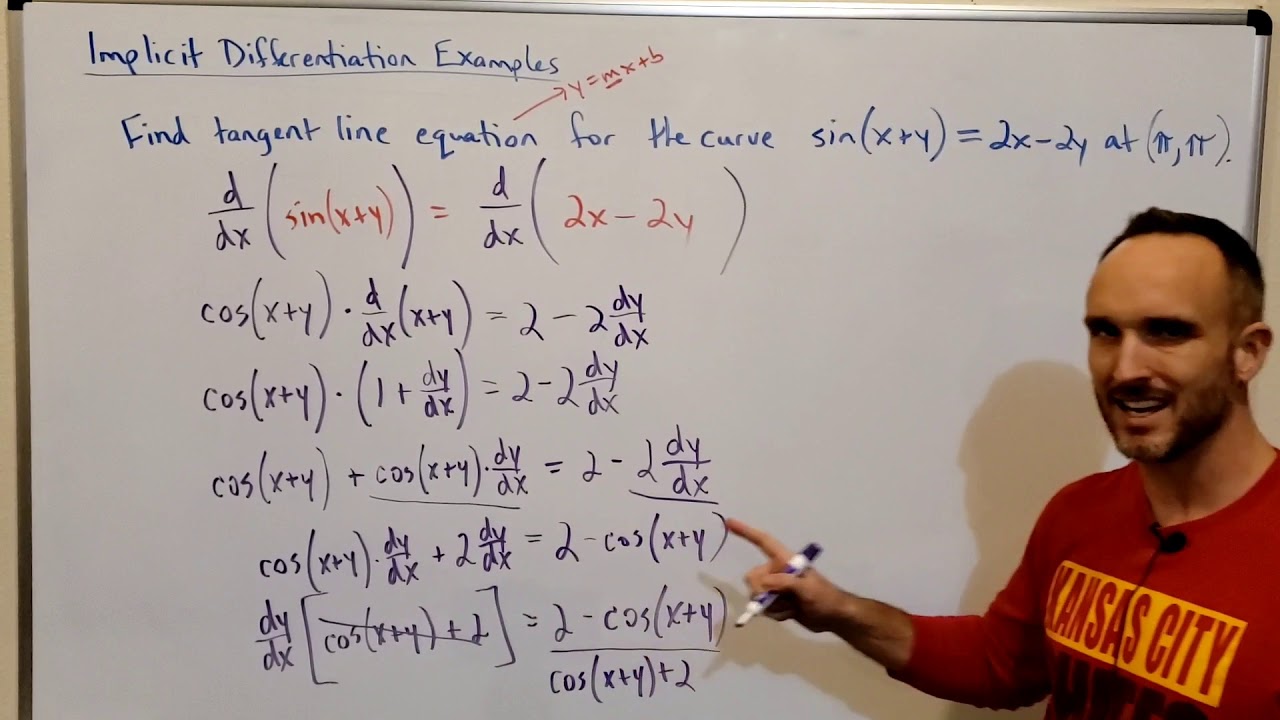 Implicit Differentiation Examples
y=mx+b
Find tangent line equation for the curve sin(x+y) = 2x-2y at (π,π).
d/dx (sin(x+y)) = d/dx (2x-2y)
cos(x+y) · d/dx (x+y) = 2 - 2 dy/dx
cos(x+y) · (1 + dy/dx) = 2 - 2 dy/dx
cos(x+y) + cos(x+y) · dy/dx = 2 - 2 dy/dx
cos(x+y) · dy/dx + 2 dy/dx = 2 - cos(x+y)
dy/dx [cos(x+y) + 2] = 2 - cos(x+y) / cos(x+y)+2
KANSAS CITY